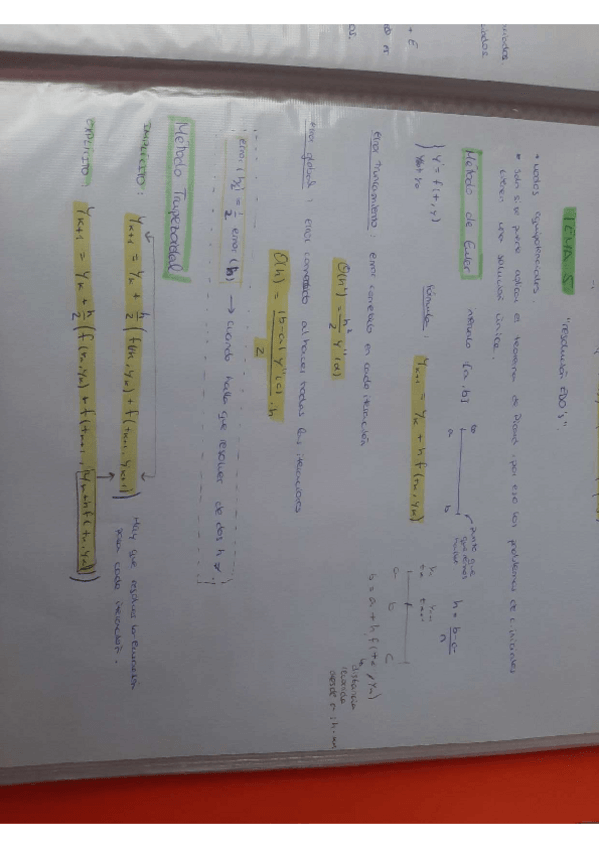 TEMA 5
"resolución EDO's".
• nodos equiespaciados.
• Son sirve para aplicar el teorema de Picard, por eso los problemas de c. iniciales
tienen una solución única.
Método de Euler
método [a,b]
t0
a b
punto que queremos hallar
h = b-a/n
{ y' = f(t,y)
Fórmula: yk+1 = yk + h f(tk, yk)
a b c
b = a + h f(tk, yk)
distancia
error truncamiento: error cometido en cada iteración
O(h²) = h²/2 y''(c)
error global: error cometido al hacer todas las iteraciones
O(h) = (b-a) y''(c)/2 · h
error (h/2) = 1/2 error (h) → cuando haya que resolver de dos h
Método Trapezoidal
IMPLÍCITO: yk+1 = yk + h/2 (f(tk, yk) + f(tk+1, yk+1))
Hay que resolver la ecuación
para cada iteración.
EXPLÍCITO: yk+1 = yk + h/2 (f(tk, yk) + f(tk+1, yk + h f(tk, yk)))